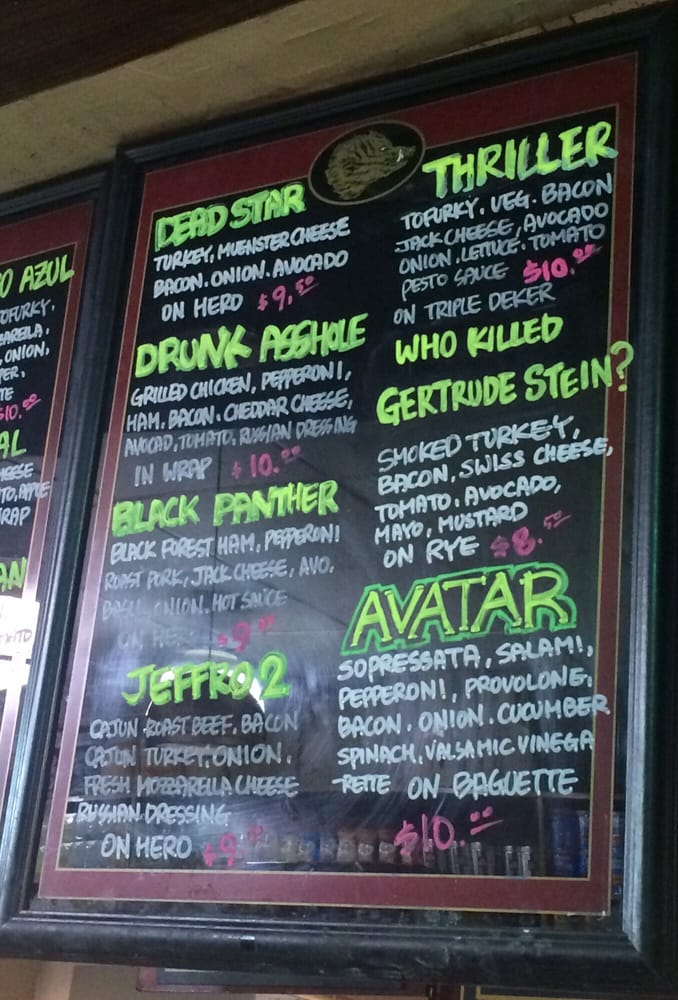 O AZUL
TOFURKY,
ONION,
$10.00
AL
CHEESE
WRAP
AN
DEAD STAR
TURKEY, MUENSTER CHEESE
BACON. ONION. AVOCADO
ON HERO $9.50
DRUNK ASSHOLE
GRILLED CHICKEN, PEPPERONI,
HAM, BACON. CHEDDAR CHEESE,
AVOCAD, TOMATO, RUSSIAN DRESSING
IN WRAP $10.00
BLACK PANTHER
BLACK FOREST HAM, PEPPERONI
ROAST PORK, JACK CHEESE, AVO,
BASIL ONION. HOT SAUCE
ON HERO $9
JEFFRO 2
CAJUN ROAST BEEF. BACON
CAJUN TURKEY, ONION.
FRESH MOZZARELLA CHEESE
RUSSIAN DRESSING
ON HERO $9
THRILLER
TOFURKY. VEG. BACON
JACK CHEESE, AVOCADO
ONION. LETTUCE. TOMATO
PESTO SAUCE $10.00
ON TRIPLE DEKER
WHO KILLED
GERTRUDE STEIN?
SMOKED TURKEY,
BACON, SWISS CHEESE,
TOMATO. AVOCADO,
MAYO, MUSTARD
ON RYE $8.50
AVATAR
SOPRESSATA, SALAMI,
PEPPERONI, PROVOLONE.
BACON. ONION. CUCUMBER
SPINACH, VALSAMIC VINEGA
-RETTE ON BAGUETTE
$10.00